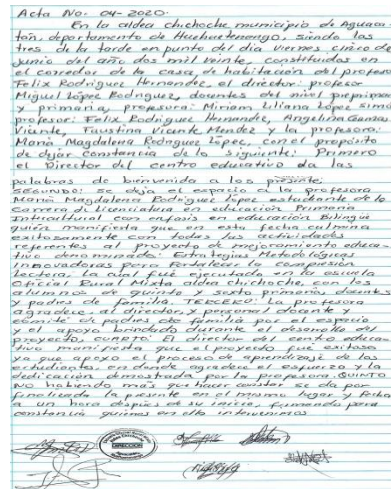 Acta No. 04-2020.
En la aldea chichoche municipio de Aguaca
tán, departamento de Huehuetenango, siendo las
tres de la tarde en punto del día viernes cinco de
junio del año dos mil veinte, constituidos en
el corredor de la casa de habitación del profesor
Felix Rodriguez Hernandez el director: profesor
Miguel López Rodriguez, docentes de nivel preprimaria
y primaria, profesora: Miriam Liliana López
profesor: Felix Rodriguez Hernandez, Angelina
Vicente, Faustina Vicente Mendez y la profesora:
Maria Magdalena Rodriguez López, con el propósito
de dejar constancia de lo siguiente: Primero
el Director del centro educativo da las
palabras de bienvenida a los presente.
SEGUNDO: se deja el espacio a la profesora
Maria Magdalena Rodriguez López estudiante de la
Carrera de Licenciatura en educación Primaria
Intercultural con enfasis en educación Bilingüe
quien manifiesta que en esta fecha culmina
exitosamente con todas las actividades
referentes al proyecto de mejoramiento educa-
tivo denominado: Estrategias Metodológicas
innovadoras para fortalecer la comprensión
lectora. La cual fué ejecutado en la escuela
Oficial Rural Mixta aldea Chichoche, con los
alumnos de quinto y sexto primaria, docentes
y padres de familia. TERCERO: La profesora
agradece al director, personal docente y
comité de padres de familia por el espacio
y el apoyo brindado durante el desarrollo del
proyecto. CUARTO: El director del centro educa-
tivo manifiesta que el proyecto fué exitoso
ya que apoyo el proceso de aprendizaje de los
estudiantes, en donde agradece el esfuerzo y la
dedicación demostrada por la profesora. QUINTO:
NO habiendo más que hacer constar se da por
finalizada la presente en el mismo lugar y fecha
a un hora después de su inicio, firmando para
constancia quienes en ella intervenimos
DIRECCION